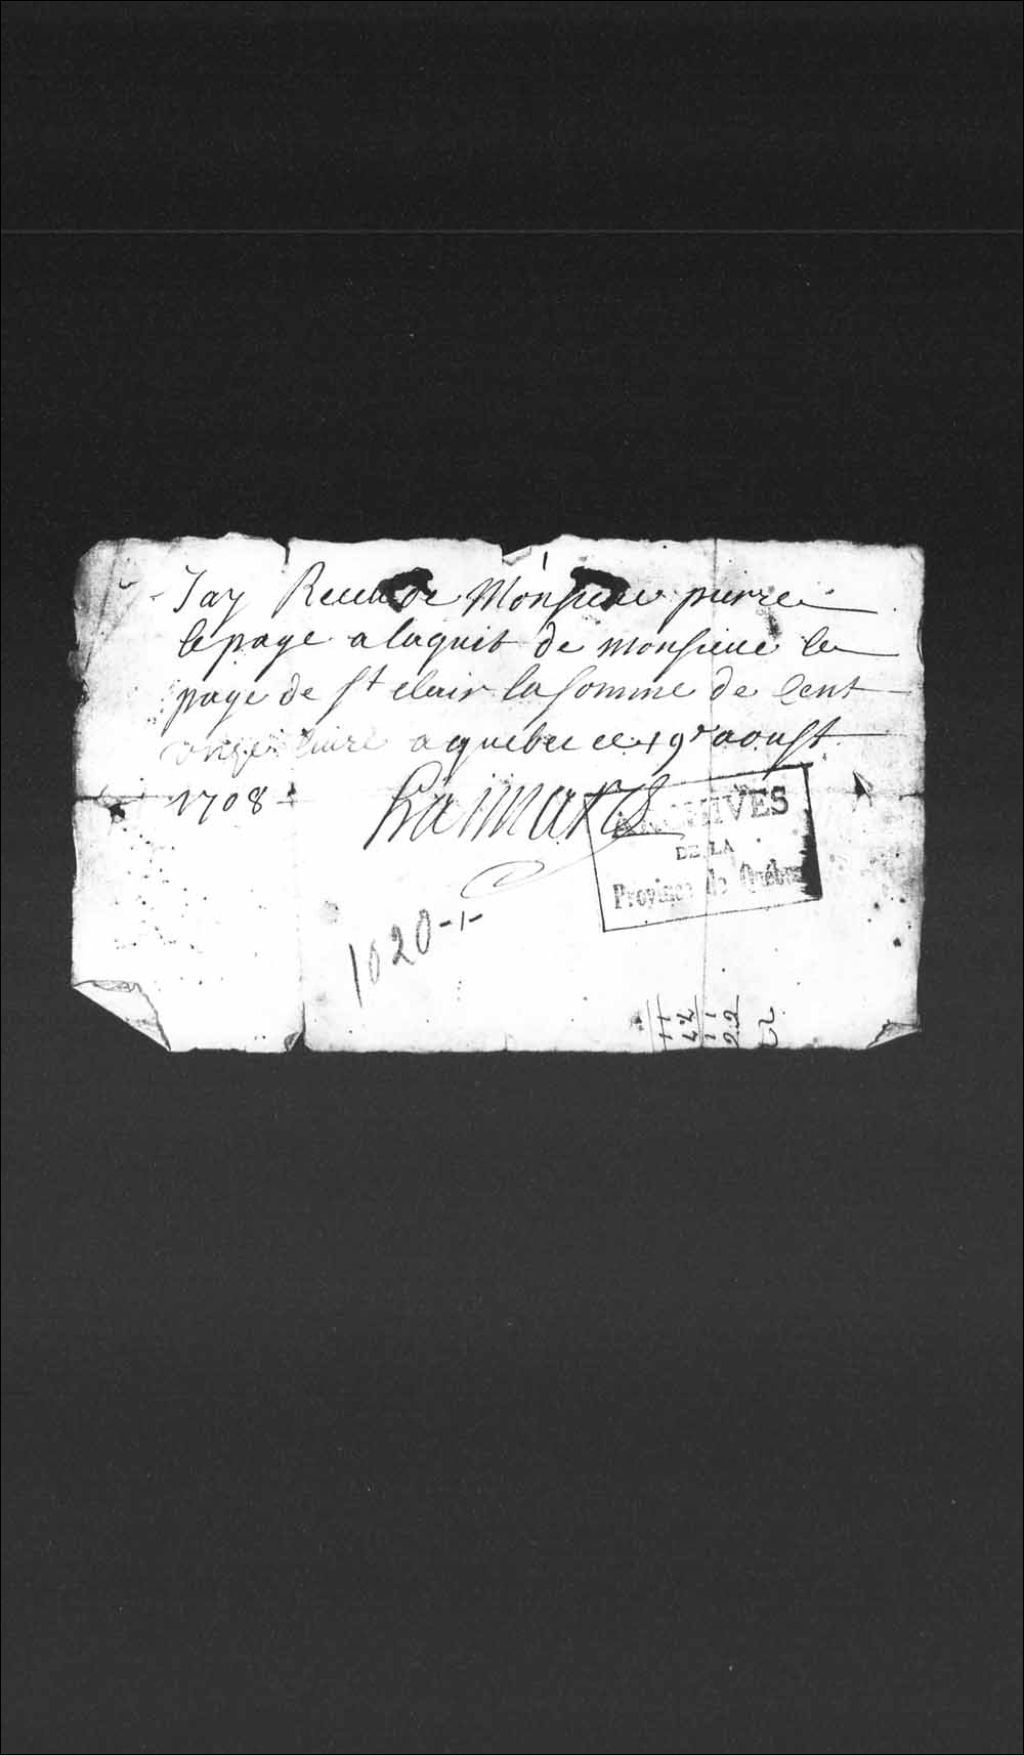 Jay Receu de Monsieur pierre
lepage alaquit de monsieur le
page de St clair la somme de Cent
onze livre a quebec ce 19e aoust
1708
haimard
ARCHIVES
DE LA
Province de Québec
1020-1-
11
22
11
22